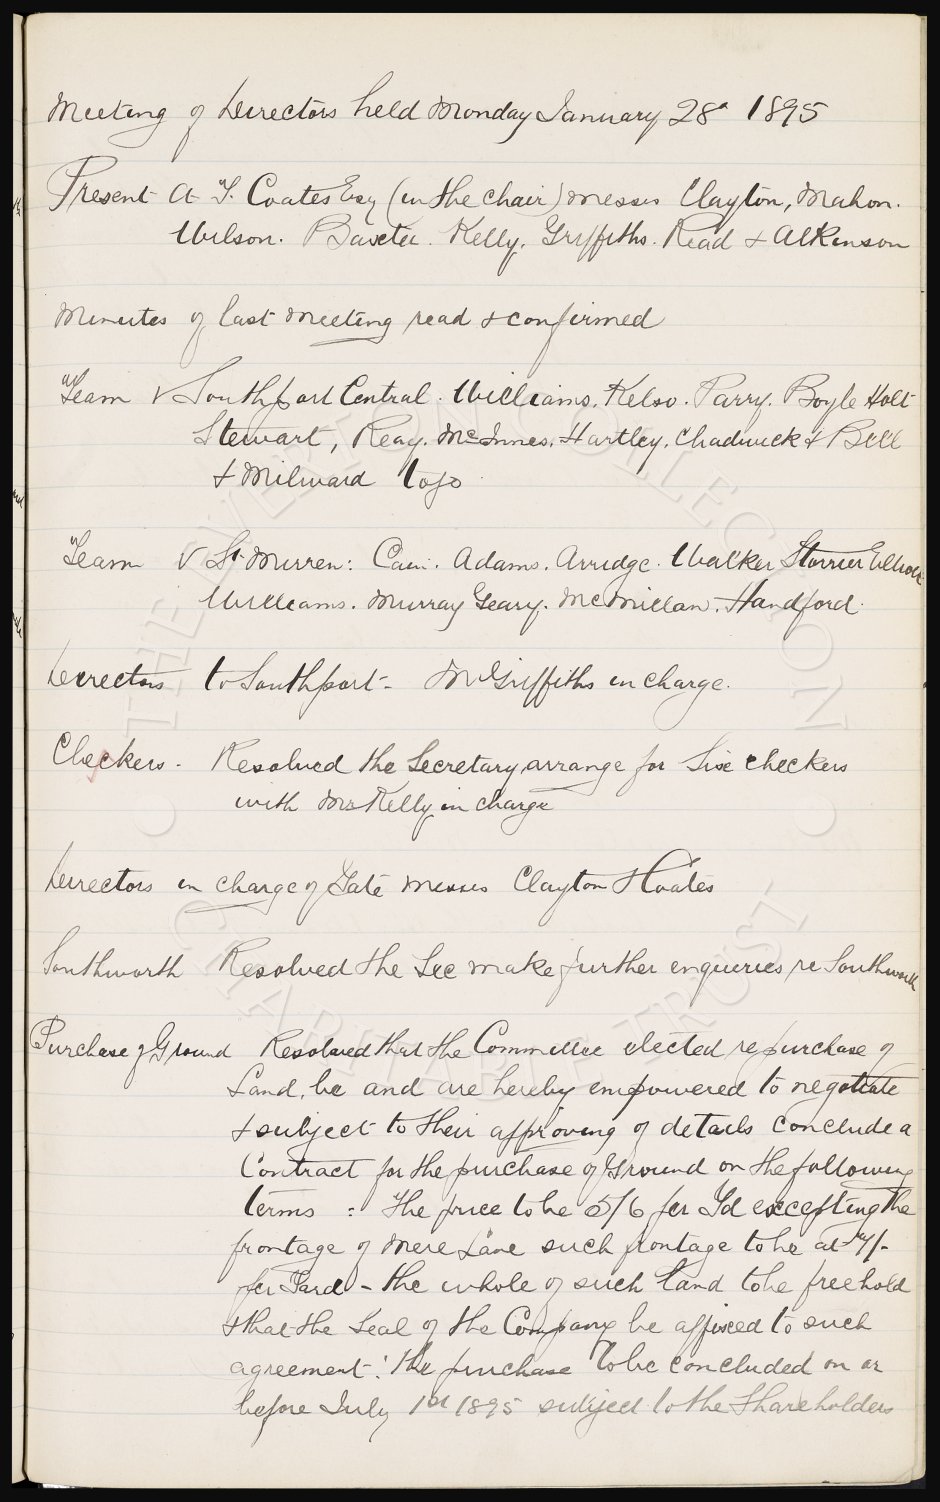 Meeting of Directors held Monday January 28" 1895
Present A T. Coates Esq (in the chair) Messrs Clayton, Mahon.
Wilson. Baxter. Kelly. Griffiths. Read & Atkinson
Minutes of last Meeting read & confirmed
Team v Southport Central. Williams. Kelso. Parry. Boyle Holt
Stewart, Reay. McInnes. Hartley. Chadwick & Bell
& Milward to go
Team v St Mirren: Cain. Adams. Arridge. Walker Storrier Elliott
Williams. Murray Geary. McMillan. Handford.
Directors to Southport - Mr Griffiths in charge.
Checkers - Resolved the Secretary arrange for Six checkers
with Mr Kelly in charge
Directors in charge of Gate Messrs Clayton & Coates
Southworth Resolved the Sec make further enquiries re Southworth
Purchase of Ground Resolved that the Committee elected re purchase of
Land, be and are hereby empowered to negotiate
& subject to their approving of details conclude a
Contract for the purchase of Ground on the following
terms : The price to be 5/6 per Yd excepting the
frontage of Mere Lane such frontage to be at 7/-
per Yard - the whole of such land to be freehold
& that the Seal of the Company be affixed to such
agreement: the purchase to be concluded on or
before July 1st 1895 subject to the Shareholders
THE EVERTON COLLECTION
CHARITABLE TRUST